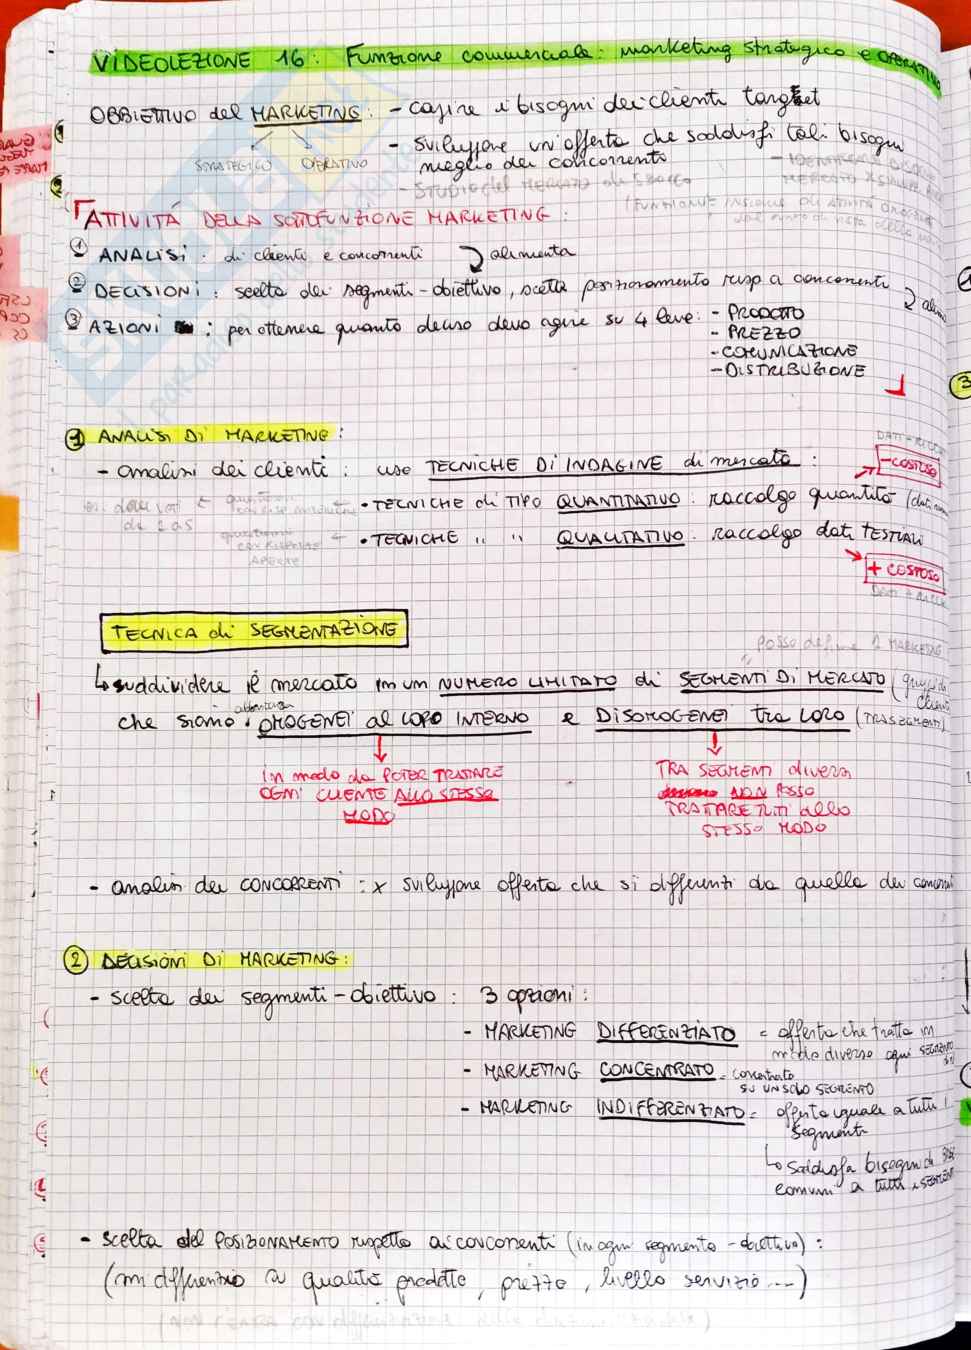 VIDEOLEZIONE 16: Funzione commerciale: marketing strategico e OPERATIVO
OBBIETTIVO del MARKETING: - capire i bisogni dei clienti target
STRATEGICO OPERATIVO
- sviluppare un'offerta che soddisfi tali bisogni
meglio dei concorrenti
- STUDIO del MERCATO di SBOCCO
ATTIVITÁ DELLA SOTTOFUNZIONE MARKETING:
1 ANALISI: di clienti e concorrenti alimenta
2 DECISIONI: scelta dei segmenti-obiettivo, scelta posizionamento risp a concorrenti
3 AZIONI: per ottenere quanto deciso devo agire su 4 leve: - PRODOTTO
- PREZZO
- COMUNICAZIONE
- DISTRIBUZIONE
3
1 ANALISI DI MARKETING:
- analisi dei clienti: uso TECNICHE DI INDAGINE di mercato:
- COSTOSO
• TECNICHE di TIPO QUANTITATIVO: raccolgo quantità
• TECNICHE " " QUALITATIVO: raccolgo dati TESTUALI
questionari con RISPOSTE APERTE
+ COSTOSO
TECNICA di SEGMENTAZIONE
Posso definire 1 MARKETING
↳ suddividere il mercato in un NUMERO LIMITATO di SEGMENTI DI MERCATO (gruppi di clienti
che siano abbastanza OMOGENEI al LORO INTERNO e DISOMOGENEI tra LORO (TRA SEGMENTI)
in modo da POTER TRATTARE
OGNI CLIENTE ALLO STESSO
MODO
TRA SEGMENTI diversi
NON POSSO
TRATTARE TUTTI allo
STESSO MODO
- analisi dei CONCORRENTI: x sviluppare offerta che si differenti da quella dei
2 DECISIONI DI MARKETING:
- scelta dei segmenti-obiettivo: 3 opzioni:
- MARKETING DIFFERENZIATO = offerta che tratta in
modo diverso ogni SEGMENTO
- MARKETING CONCENTRATO = concentrato
SU UN SOLO SEGMENTO
- MARKETING INDIFFERENZIATO = offerta uguale a tutti i
segmenti
↳ Soddisfa bisogni di BASE
comuni a tutti i SEGMENTI
- scelta del POSIZIONAMENTO rispetto ai concorrenti (in ogni segmento-obiettivo):
(mi differenzio x qualità prodotto, prezzo, livello servizio ...)